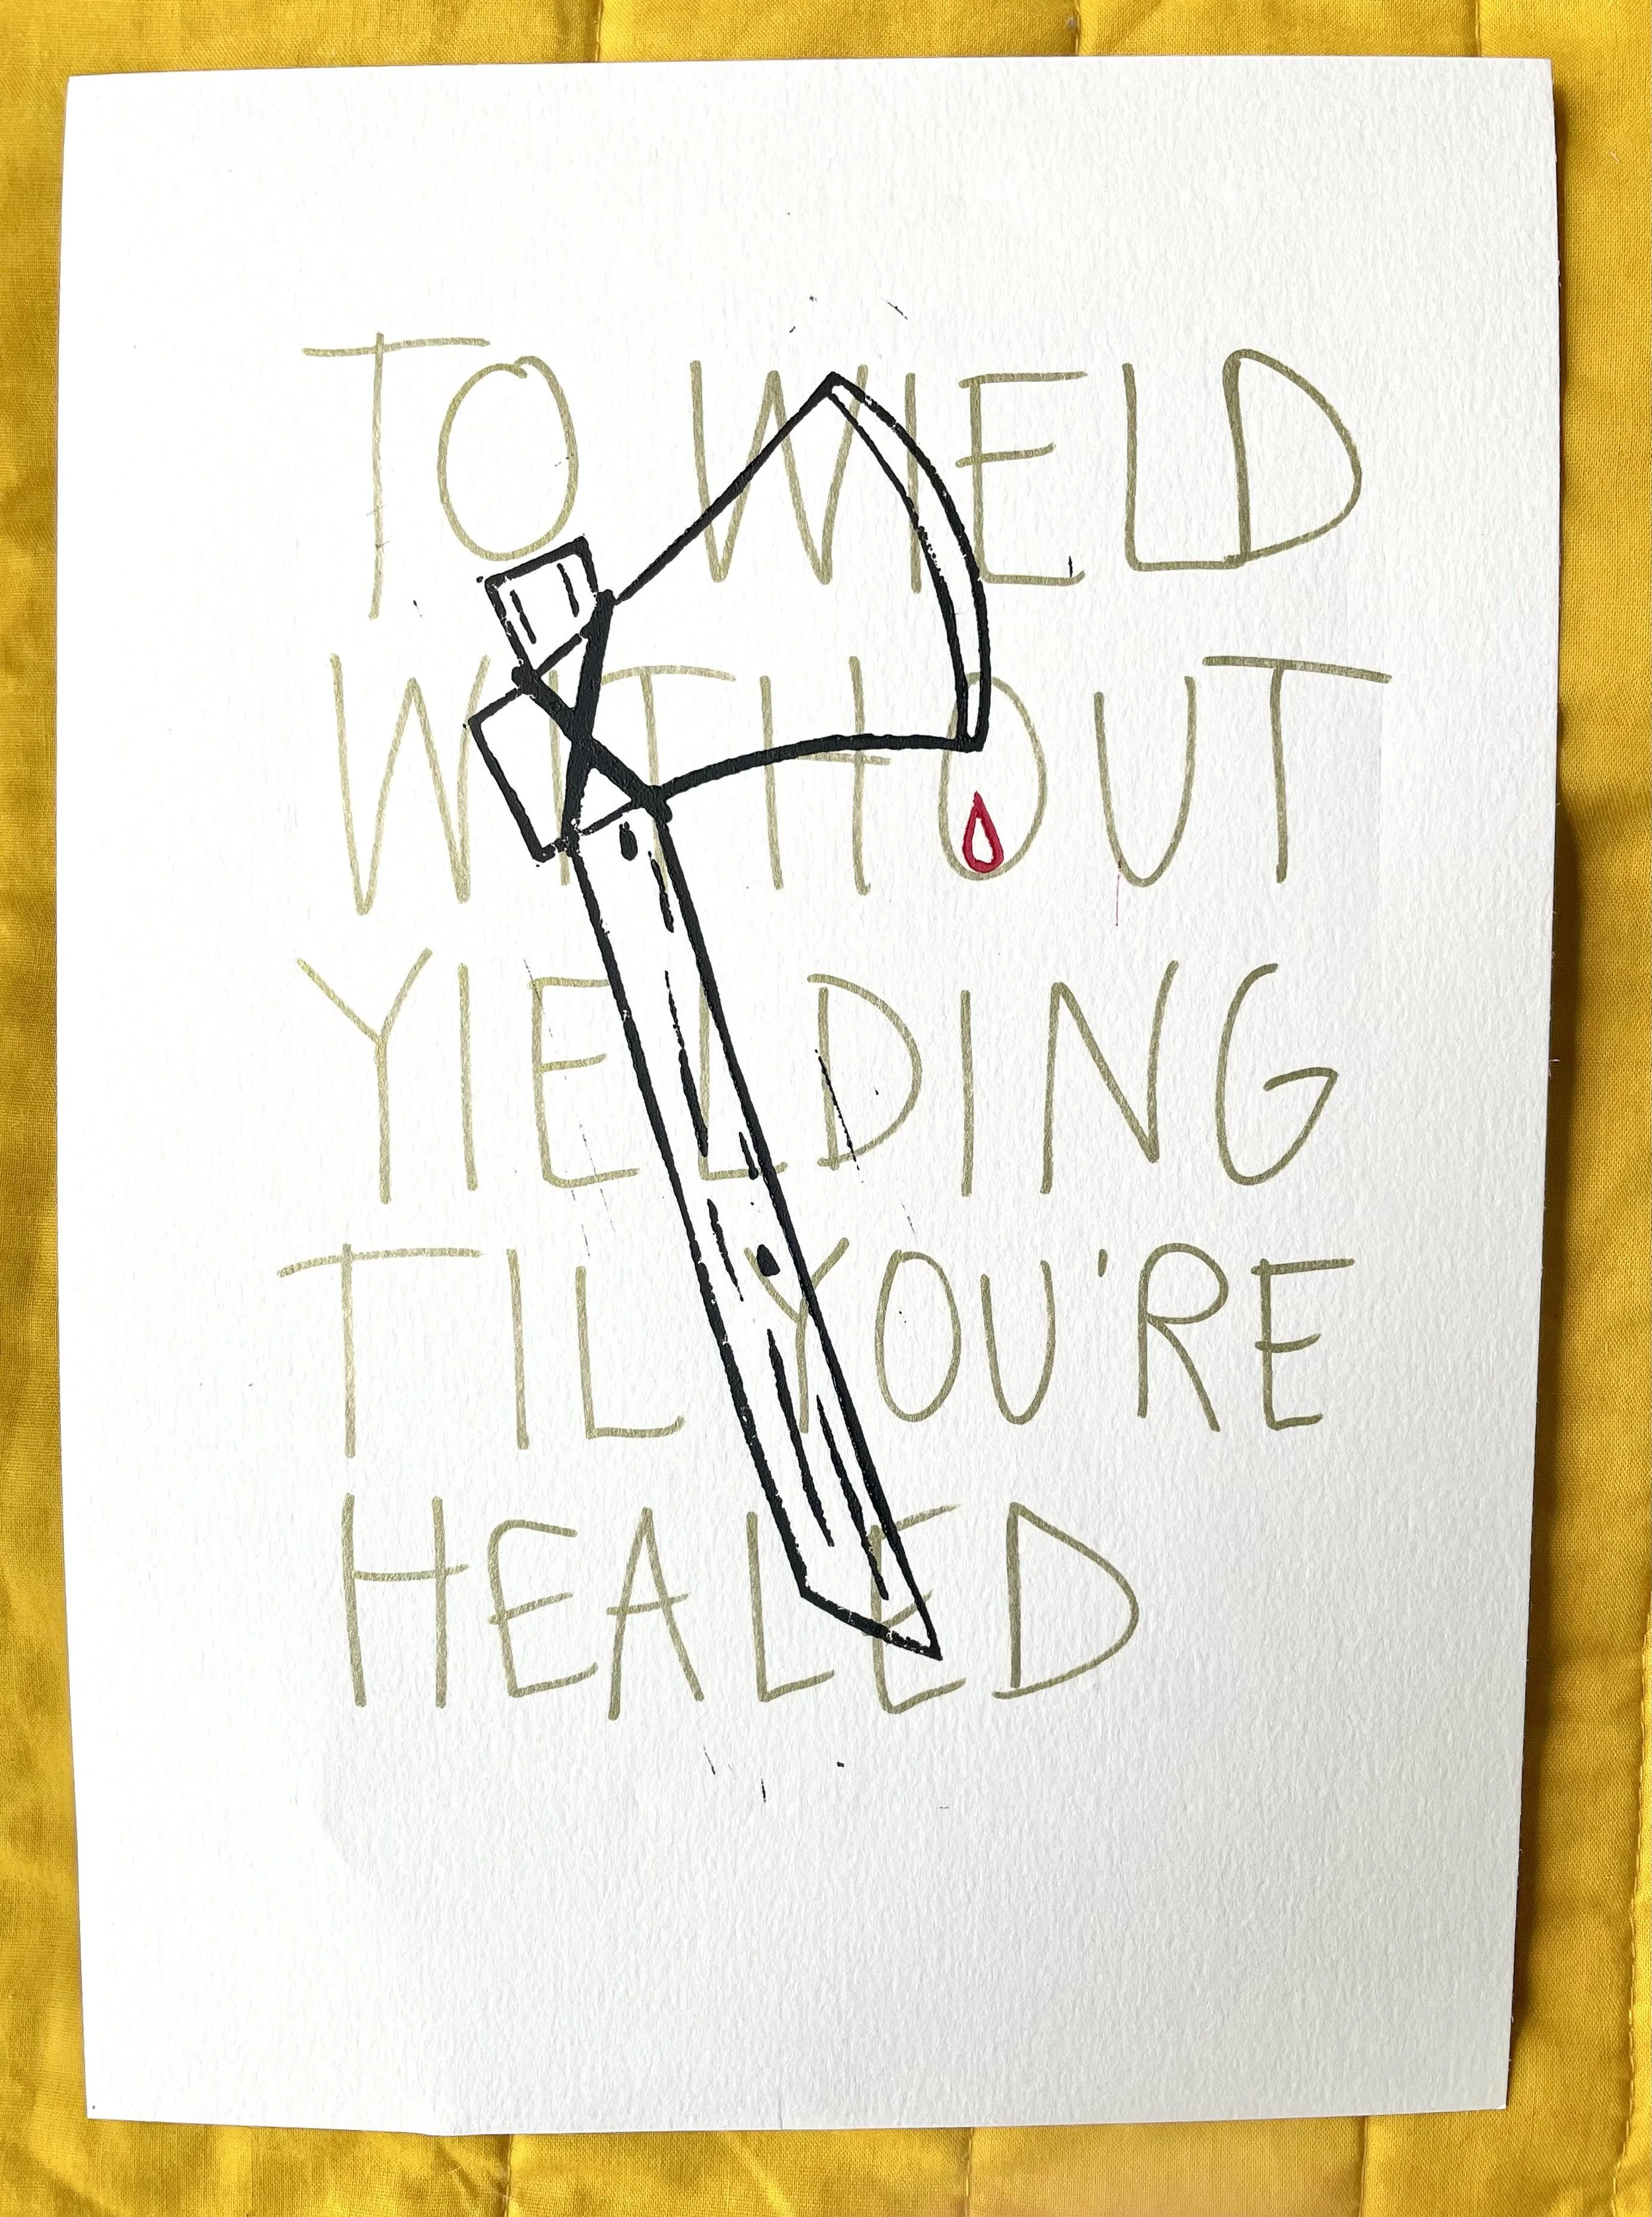 TO WIELD
WITHOUT
YIELDING
TIL YOU'RE
HEALED